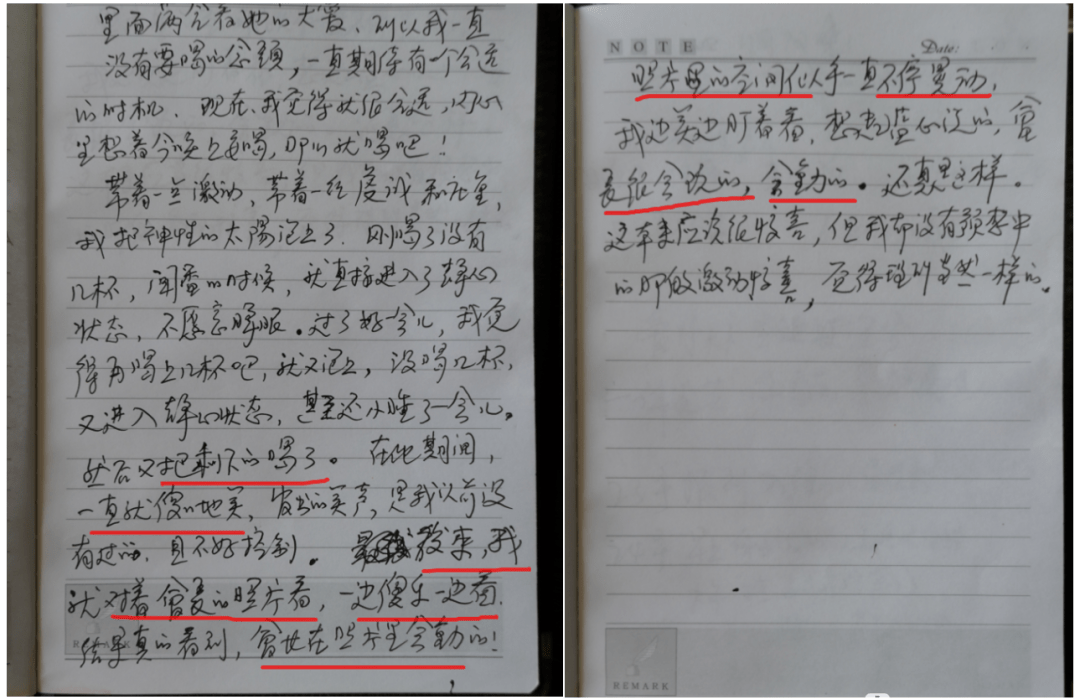 里面满含着她的大爱，所以我一直
没有要喝的念头，一直期待有一个合适
的时机。现在，我觉得就很合适，内心
里想着今晚上要喝，那么就喝吧！
带着一点激动，带着一丝虔诚和
我把神性的太陽泡上了。刚喝了没有
几杯，闻香的时候，就直接进入了静心
状态，不愿意睁眼。过了好一会儿，我觉
得再喝上几杯吧，就又泡上，没喝几杯，
又进入静心状态，甚至还小睡了一会儿。
然后又把剩下的喝了。在此期间，
一直就傻傻地笑，发出的笑声，是我以前没
有过的，且不好控制。后来，我
就对着會長的照片看，一边傻乐一边看，
结果真的看到，會長在照片里会動的！
REMARK
NOTE
Date:
照片里的空间似乎一直不停晃动，
我边笑边盯着看，想起 说的，會
長很会说的，会動的。还真是这样。
这本来应该很惊喜，但我却没有预想中
的那般激动惊喜，觉得理所当然一样的。
REMARK